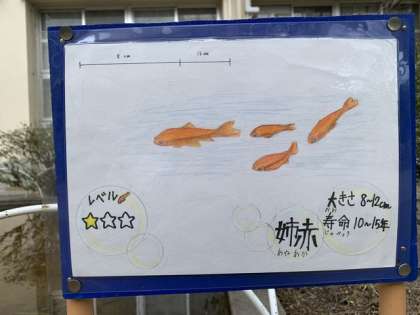 レベル
姉赤
あねあか
大きさ 8~12cm
寿命 10~15年
じゅみょう